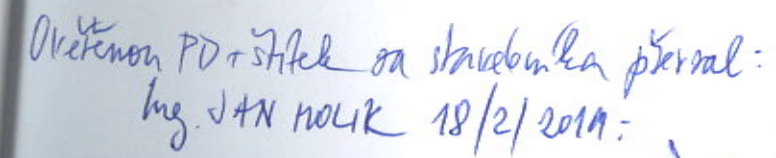 Ověřenou PD + štítek za stavebníka převzal:
Ing. JAN HOLIK 18/2/2019.